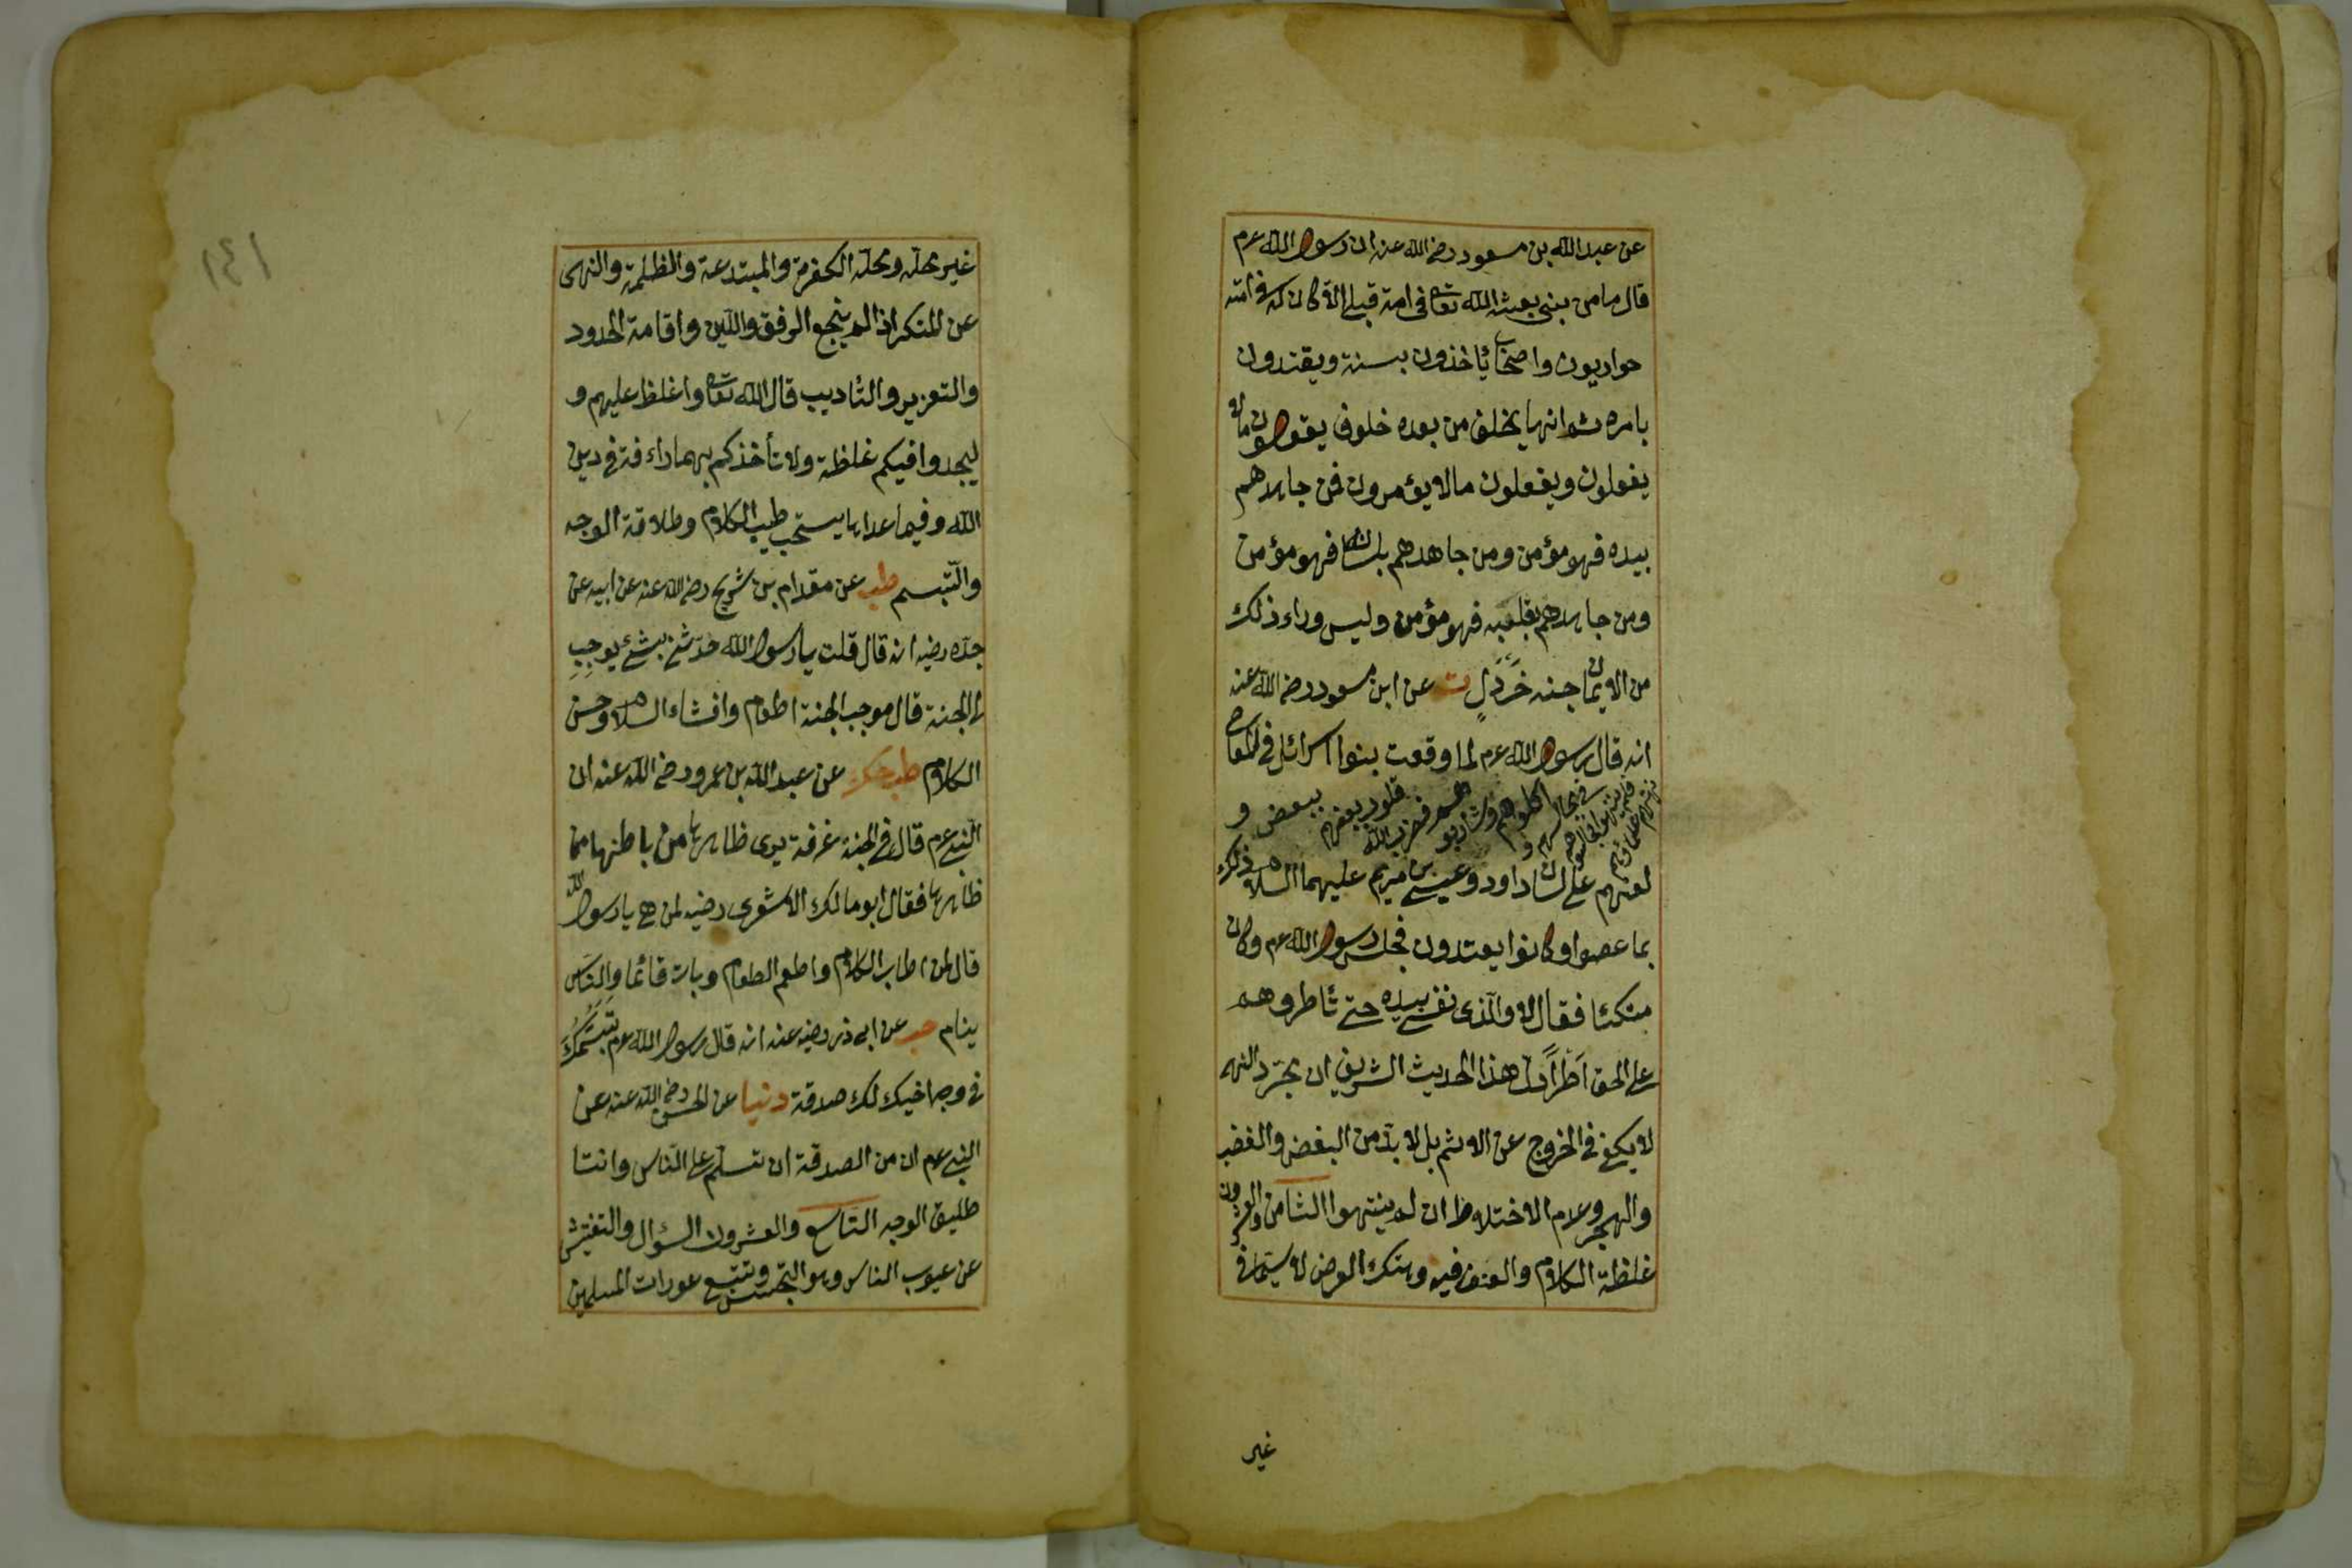 عن عبد الله بن مسعود رضي الله عنه ان رسول الله عم
قال ما من نبي بعثه الله تعا في امة قبلي الا كان له في امته
حواريون واصحاب يأخذون بسنته ويقتدون
بامره ثم انها يخلف من بعده خلوف يقولون مالا
يفعلون ويفعلون مالا يؤمرون فمن جاهدهم
بيده فهو مؤمن ومن جاهدهم بلسانه فهو مؤمن
ومن جاهدهم بقلبه فهو مؤمن وليس وراء ذلك
من الايمان حبة خردل ت عن ابن مسعود رضي الله عنه
انه قال رسول الله عم لما وقعت بنوا اسرائل في المعاصي
نهتهم علماؤهم فلم ينتهوا فجالسوهم في مجالسهم و اكلوهم وشاربوهم فضرب الله قلوب بعضهم ببعض و
لعنهم على لسان داود وعيسى بن مريم عليهما السلام ذلك
بما عصوا وكانوا يعتدون فجلس رسول الله عم وكان
متكئا فقال لا والذي نفسي بيده حتى تأطروهم
على الحق اطرا هذا الحديث الشريف ان مجرد النهى
لا يكفي في الخروج عن الاثم بل لا بد من البغض والغضب
والهجر وعدم الاختلاط ان لم ينتهوا الثامن والعشرون
غلظة الكلام والعنف فيه وهتك العرض لا سيما في
غير
١٤١
غير محله ومحله الكفرة والمبتدعة والظلمة والنهى
عن المنكر اذا لم ينجع الرفق واللين واقامة الحدود
والتعزير والتأديب قال الله تعا واغلظ عليهم و
ليجدوا فيكم غلظة ولا تأخذكم بهما راءفة في دين
الله وفيما عداها يستحب طيب الكلام وطلاقة الوجه
والتبسم طب عن مقدام بن شريح رضي الله عنه عن ابيه عن
جده رضيه انه قال قلت يا رسول الله حدثني بشئ يوجب
لي الجنة قال موجب الجنة اطعام وافشاء السلام وحسن
الكلام طب حك عن عبد الله بن عمرو رضي الله عنه ان
النبي عم قال في الجنة غرفة يرى ظاهرها من باطنها مما
ظاهرها فقال ابو مالك الاشعرى رضيه لمن هي يا رسول الله
قال لمن اطاب الكلام واطعم الطعام وبات قائما والناس
ينام حب عن ابى ذر رضيه عنه انه قال رسول الله عم تبسمك
في وجه اخيك لك صدقة دنيا عن الحسن رضي الله عنه عن
النبي عم ان من الصدقة ان تسلم على الناس وانت
طليق الوجه التاسع والعشرون السؤال والتفتيش
عن عيوب الناس وهو التجسس وتتبع عورات المسلمين